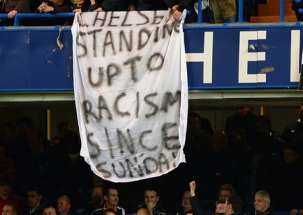 CHELSEA
STANDIN
UP TO
RACISM
SINCE
SUNDAY
HE